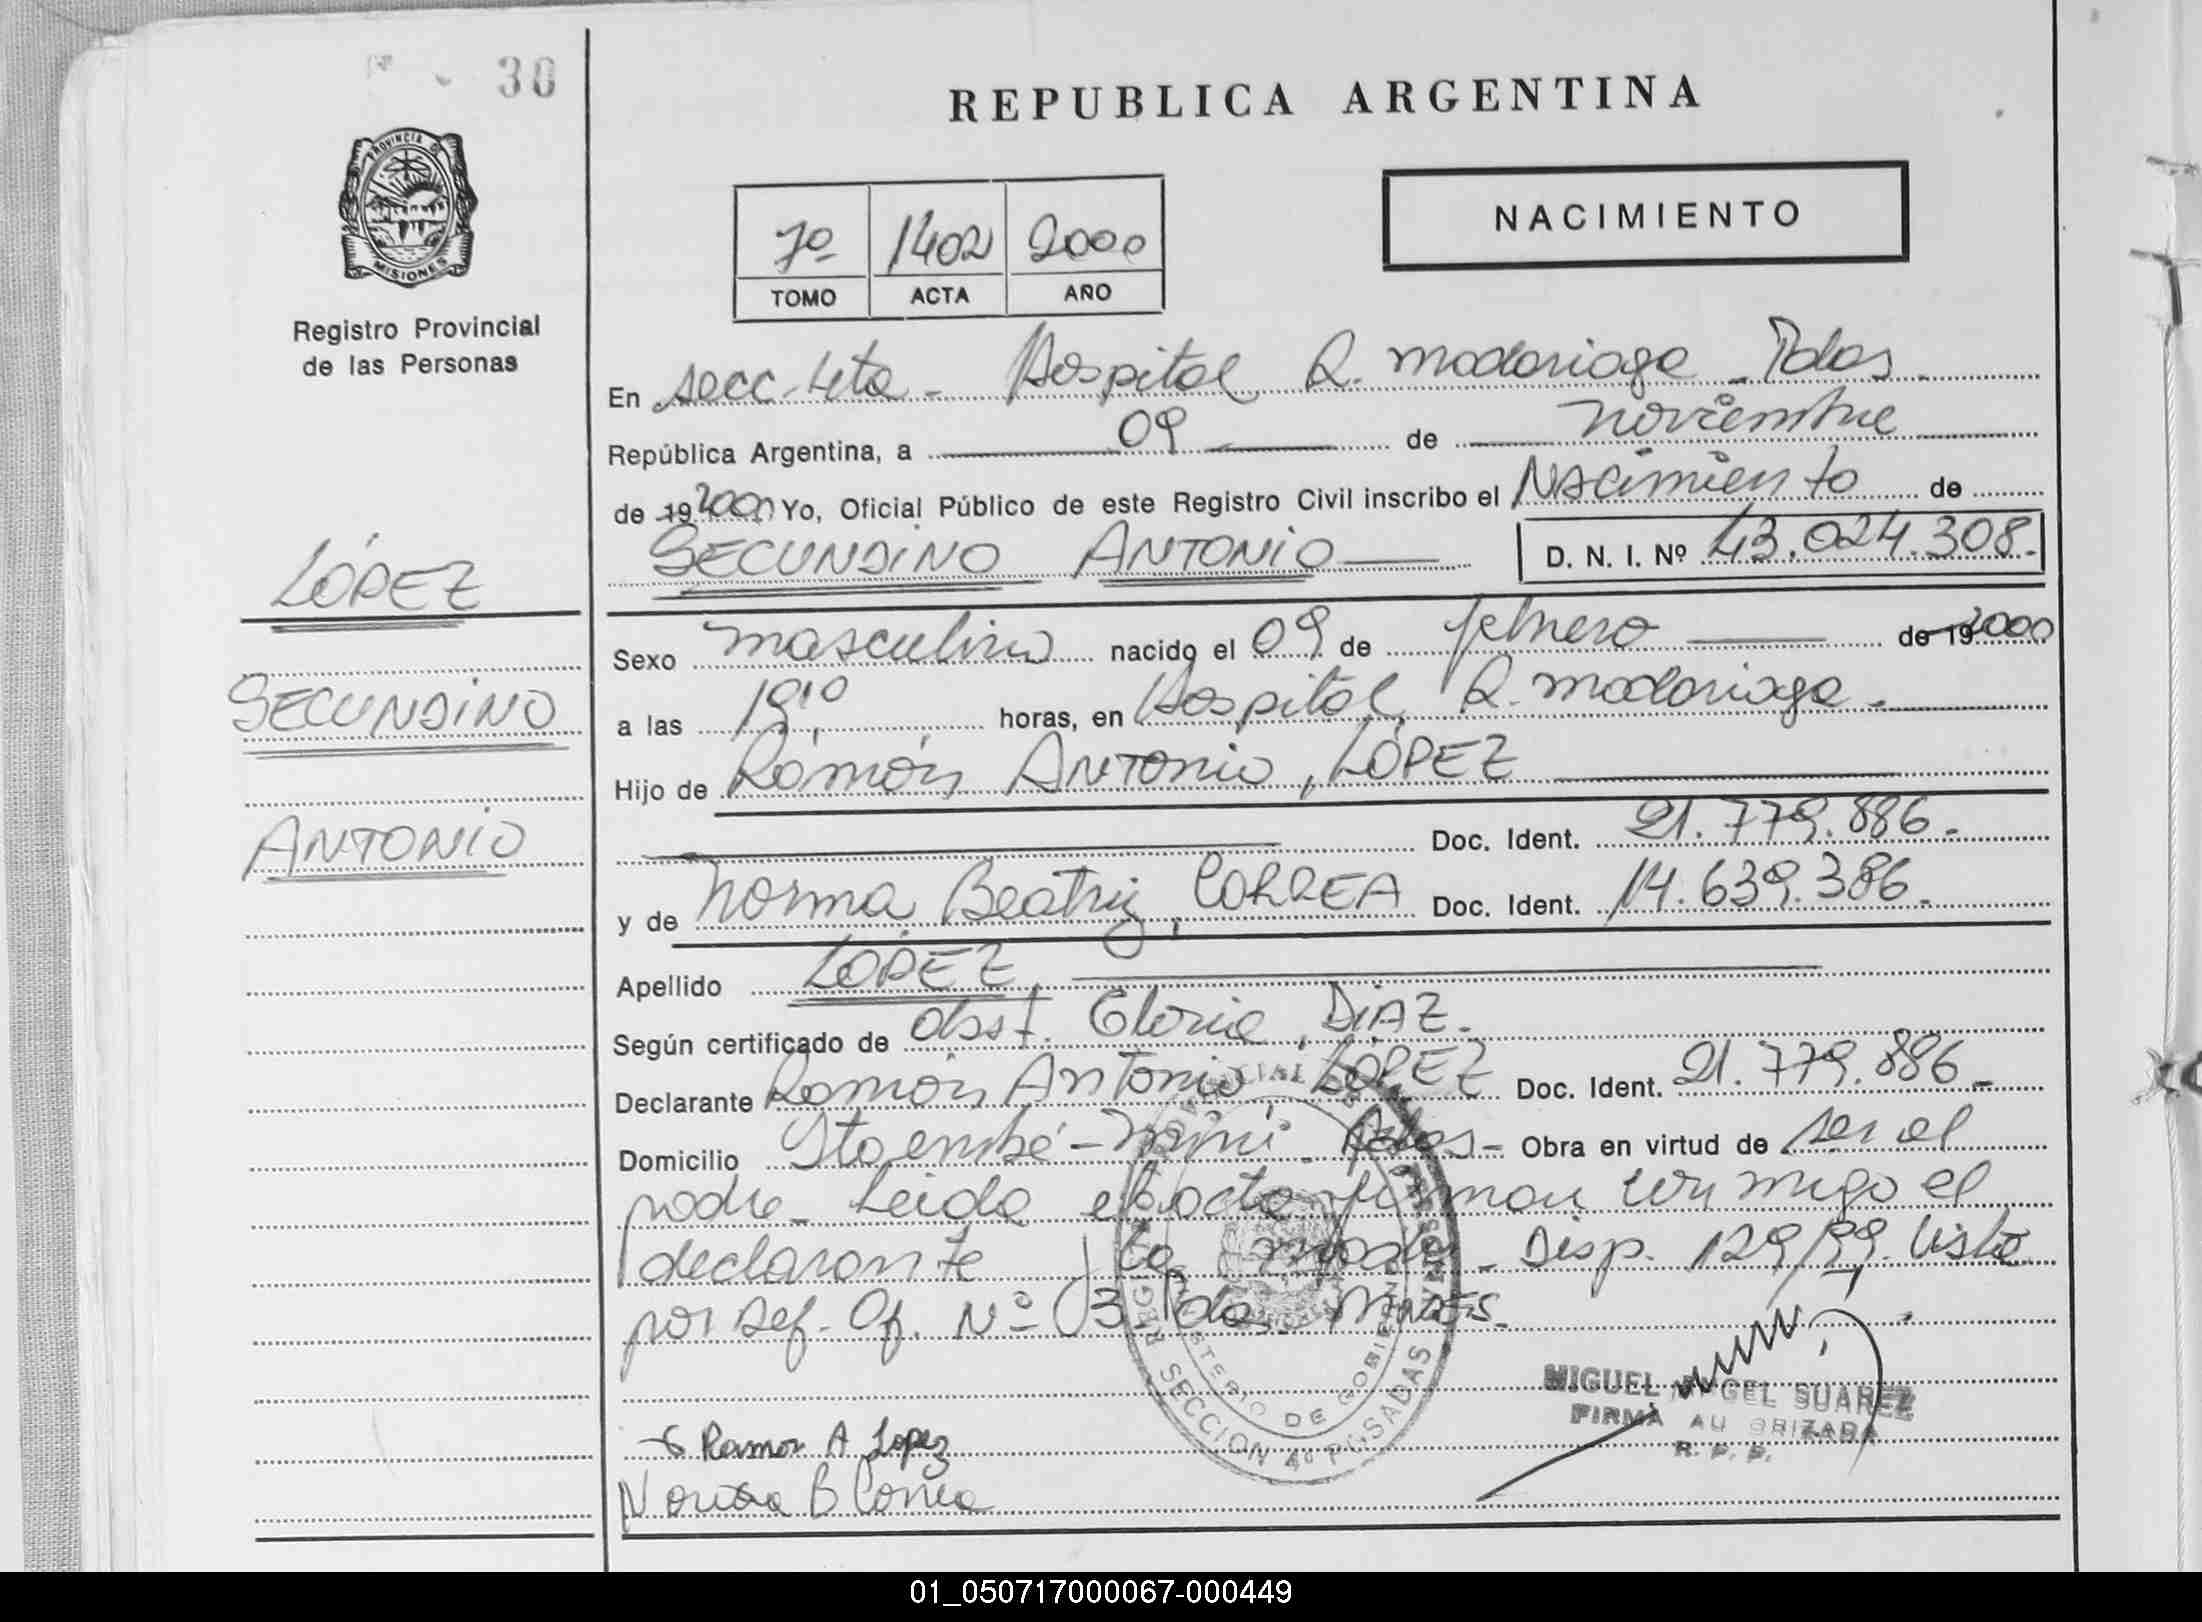 30
REPUBLICA ARGENTINA
PROVINCIA DE
MISIONES
Registro Provincial
de las Personas
7º 1402 2000
TOMO ACTA AÑO
NACIMIENTO
En secc. 4ta - Hospital R. Madariaga - Pdas.
República Argentina, a 09 de noviembre
de 19 2000 Yo, Oficial Público de este Registro Civil inscribo el Nacimiento de
SECUNDINO ANTONIO D. N. I. Nº 43.024.308.-
LÓPEZ
SECUNDINO
ANTONIO
Sexo masculino nacido el 09 de febrero de 19 2000
a las 19,10 horas, en Hospital R. Madariaga.-
Hijo de Ramón Antonio, LÓPEZ
Doc. Ident. 21.779.886.-
y de Norma Beatriz, CORREA Doc. Ident. 14.639.386.-
Apellido LÓPEZ
Según certificado de obst. Gloria, DIAZ.-
Declarante Ramón Antonio LÓPEZ Doc. Ident. 21.779.886.-
Domicilio Itaembé-Miní - Pdas- Obra en virtud de ser el
padre - Leida el acta firman conmigo el
declarante y la madre - Disp. 129/99. Visto
por Def. Of. Nº 3 Pdas. Mnes.
SECCION 4º POSADAS
MINISTERIO DE GOBIERNO
MIGUEL ANGEL SUAREZ
FIRMA AUTORIZADA
R. P. P.
Ramon A Lopez
Norma B Correa
01_050717000067-000449